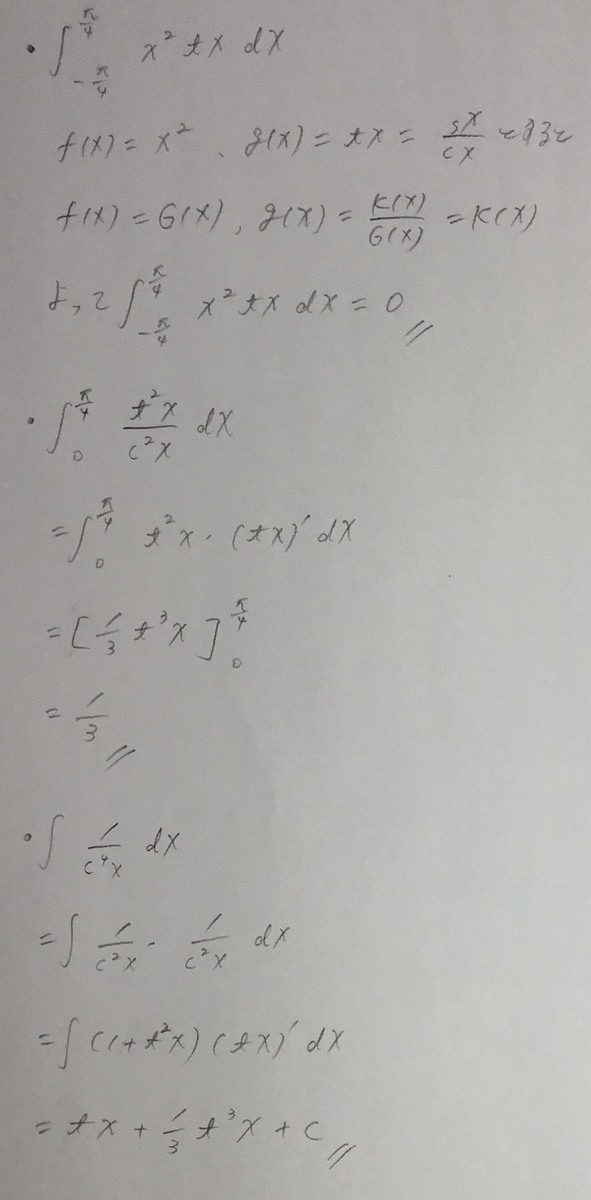 ・∫_{-π/4}^{π/4} x² tx dx
f(x) = x²、g(x) = tx = sx/cx とすると
f(x) = G(x), g(x) = K(x)/G(x) = K(x)
よって ∫_{-π/4}^{π/4} x² tx dx = 0 //
・∫_0^{π/4} t²x/c²x dx
= ∫_0^{π/4} t²x・(tx)′ dx
= [1/3 t³x]_0^{π/4}
= 1/3 //
・∫ 1/c⁴x dx
= ∫ 1/c²x・1/c²x dx
= ∫ (1+t²x)(tx)′ dx
= tx + 1/3 t³x + c //